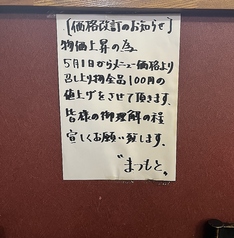 【価格改訂のお知らせ】
物価上昇の為、
5月1日からメニュー価格より
召し上り物全品100円の
値上げをさせて頂きます。
皆様の御理解の程
宜しくお願い致します。
まつもと。